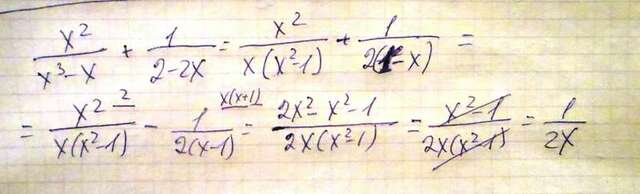 x²/(x³-x) + 1/(2-2x) = x²/(x(x²-1)) + 1/(2(1-x)) =
= x² ²/(x(x²-1)) - 1 x(x+1)/(2(x-1)) = (2x²-x²-1)/(2x(x²-1)) = (x²-1)/(2x(x²-1)) = 1/(2x)